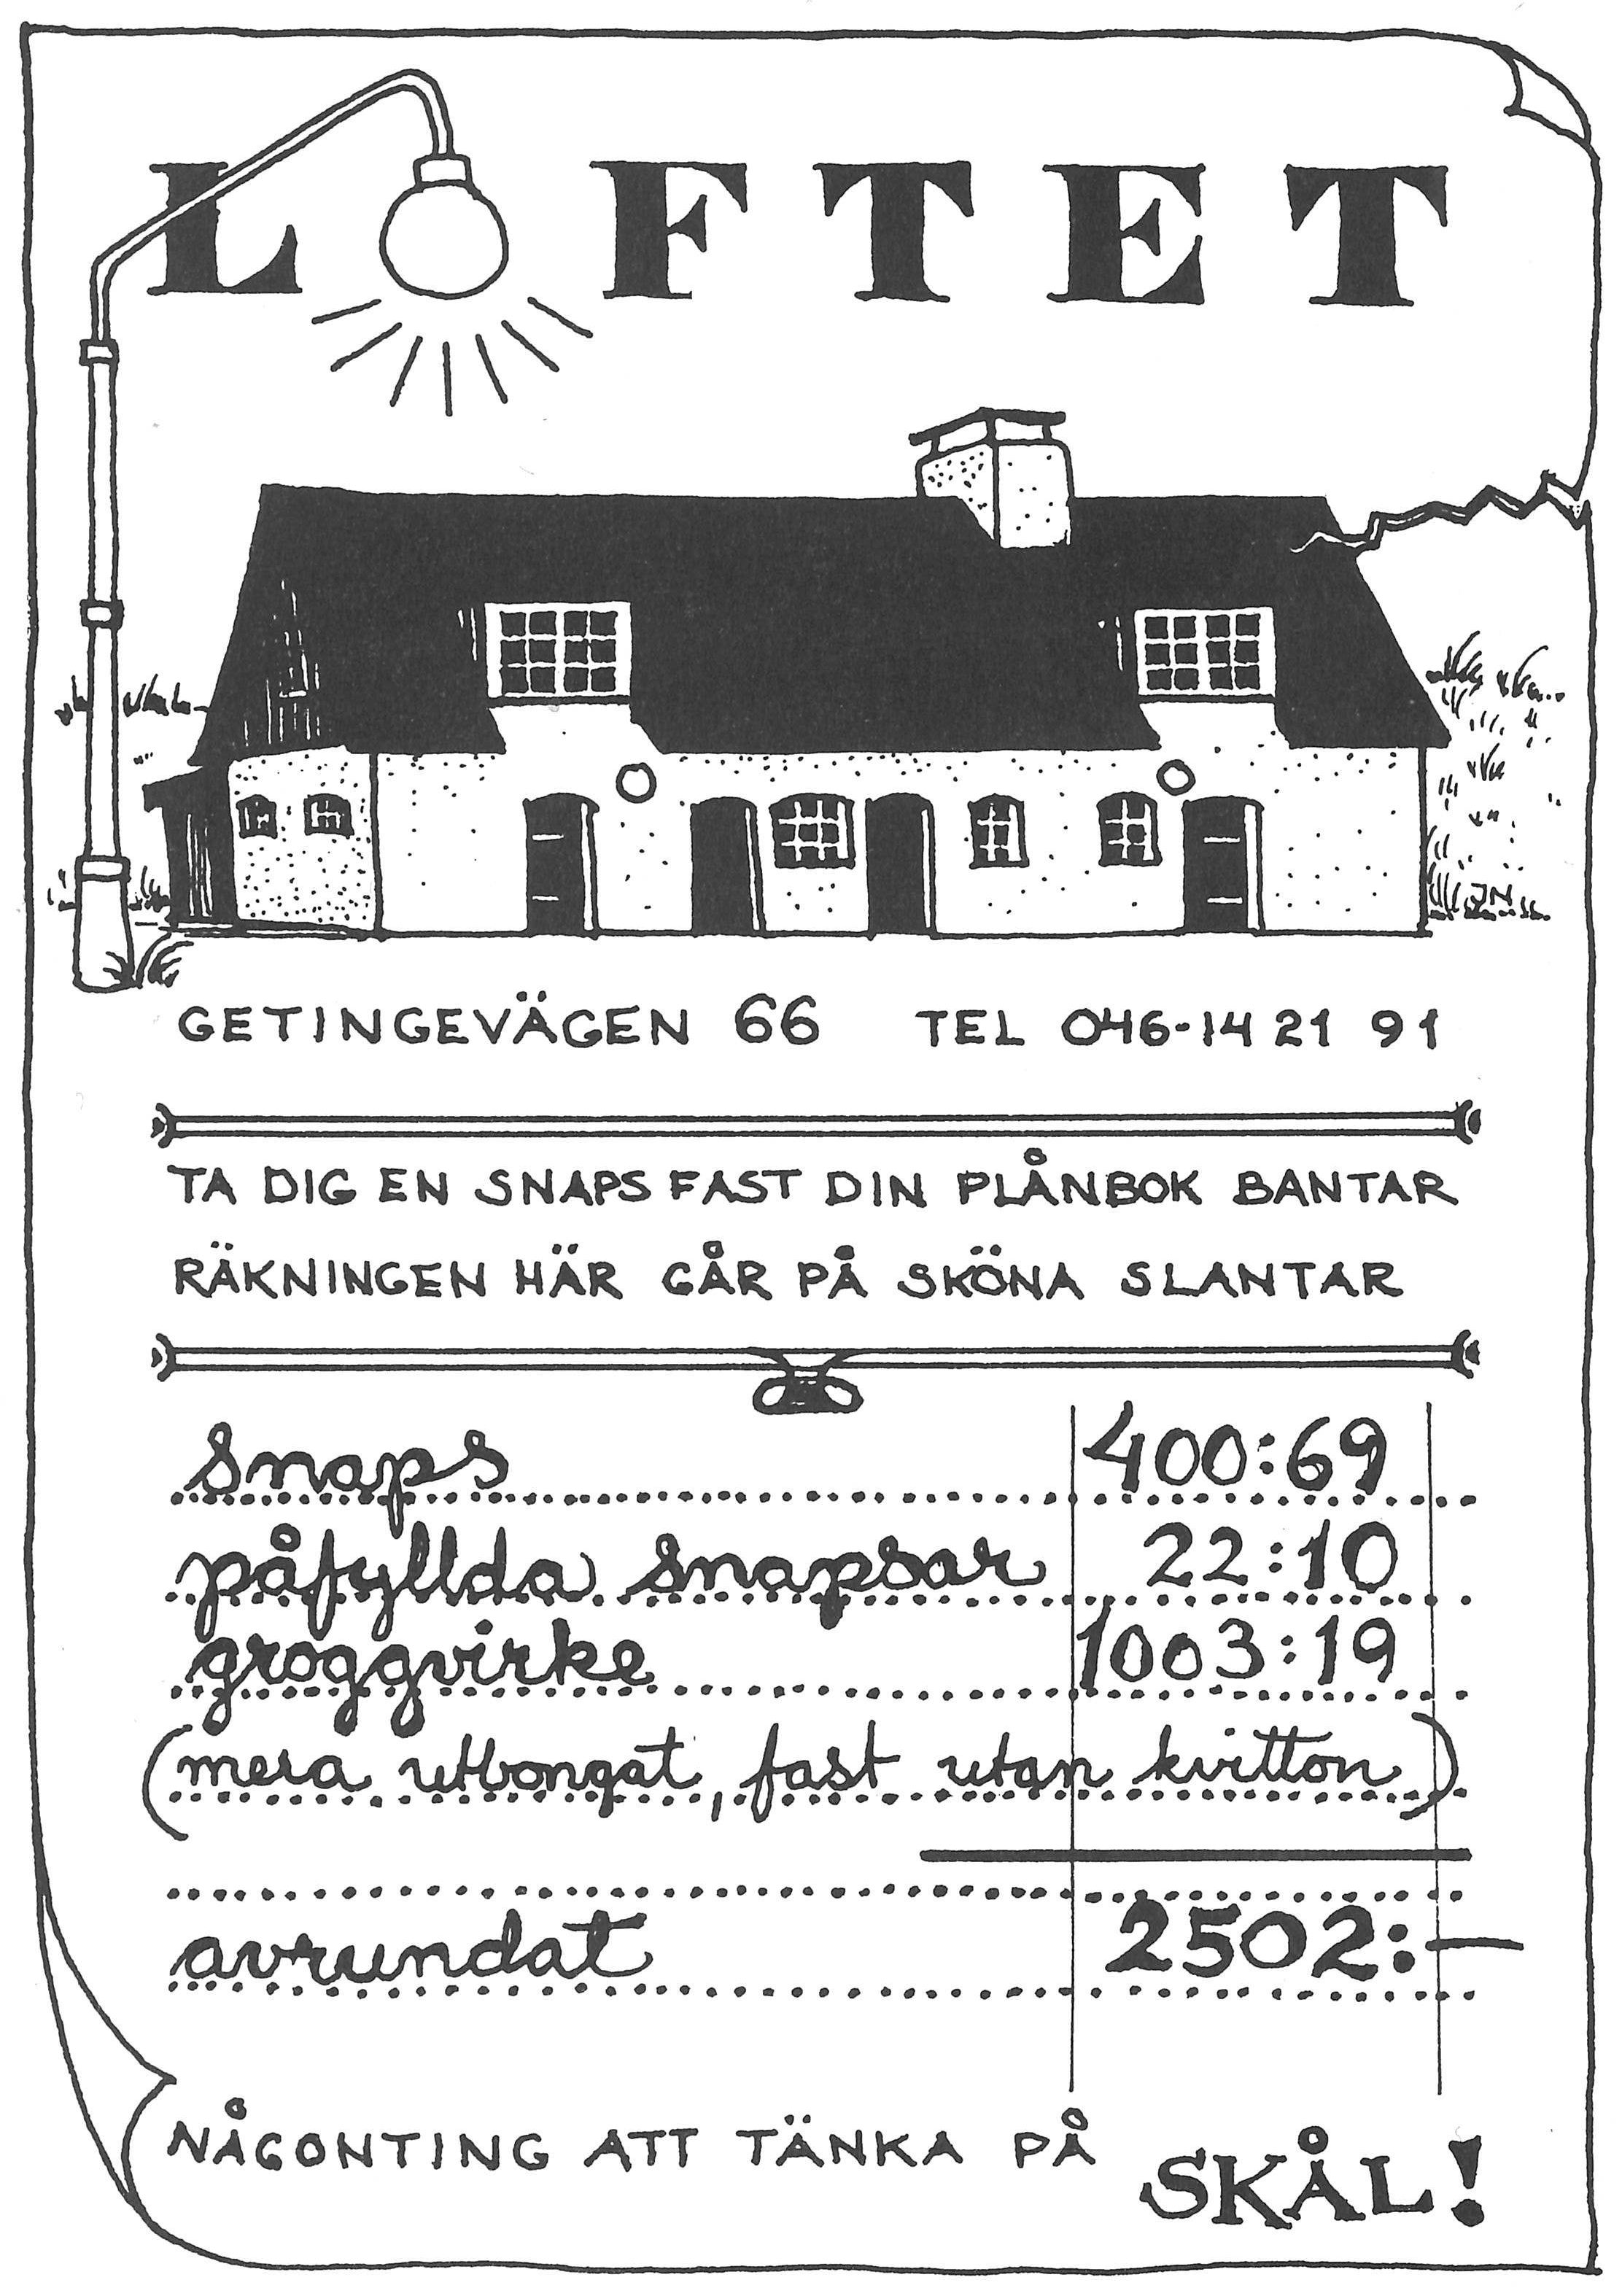 LOFTET
JN
GETINGEVÄGEN 66 TEL 046-14 21 91
TA DIG EN SNAPS FAST DIN PLÅNBOK BANTAR
RÄKNINGEN HÄR GÅR PÅ SKÖNA SLANTAR
snaps 400:69
påfyllda snapsar 22:10
groggvirke 1003:19
(mera utbongat, fast utan kvitton)
avrundat 2502:—
NÅGONTING ATT TÄNKA PÅ SKÅL!